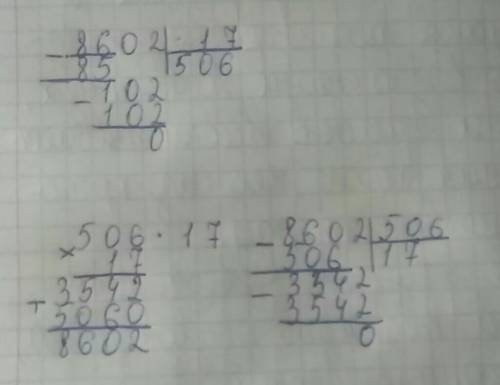 - 8602 | 17
85 | 506
- 102
102
0
506 · 17
× 17
3542
+ 5060
8602
- 8602 | 506
506 | 17
- 3542
3542
0